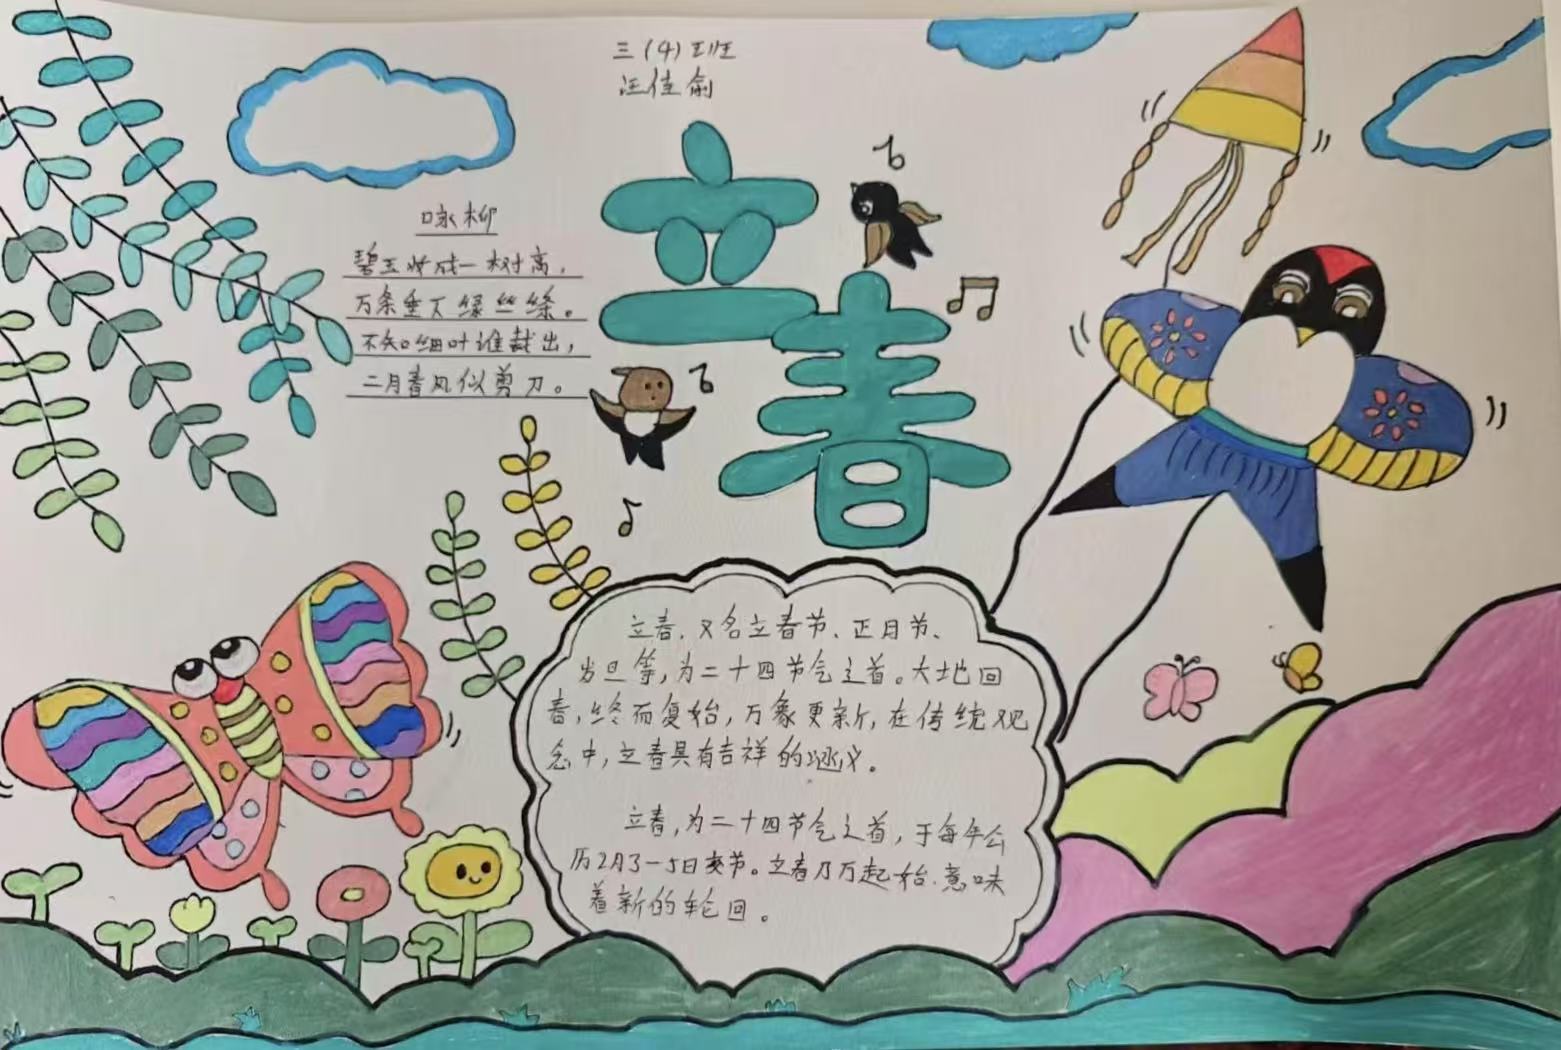 三(4)班
汪佳俞
立春
咏柳
碧玉妆成一树高，
万条垂下绿丝绦。
不知细叶谁裁出，
二月春风似剪刀。
立春，又名立春节、正月节、
岁旦等，为二十四节气之首。大地回
春，终而复始，万象更新，在传统观
念中，立春具有吉祥的涵义。
立春，为二十四节气之首，于每年公
历2月3-5日交节。立春乃万起始、意味
着新的轮回。